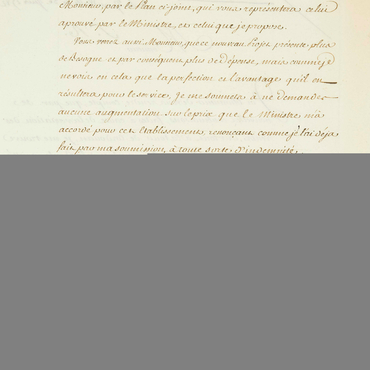 Monsieur, par le Plan cy joint, qui vous representera celui
aprouvé par le Ministre, et celui que je propose.
Vous verez aussi Monsieur, que ce nouveau Projet presente plus
de Besogne et par consequent plus de dépense, mais comme je
ne vois en cela que la perfection et l'avantage qu'il en
résultera pour le service, je me soumets à ne demander
aucune augmentation sur le prix que le Ministre m'a
accordé pour cet Etablissement, renonçant comme je l'ai déja
fait par ma soumission, à toute sorte d'indemnité.